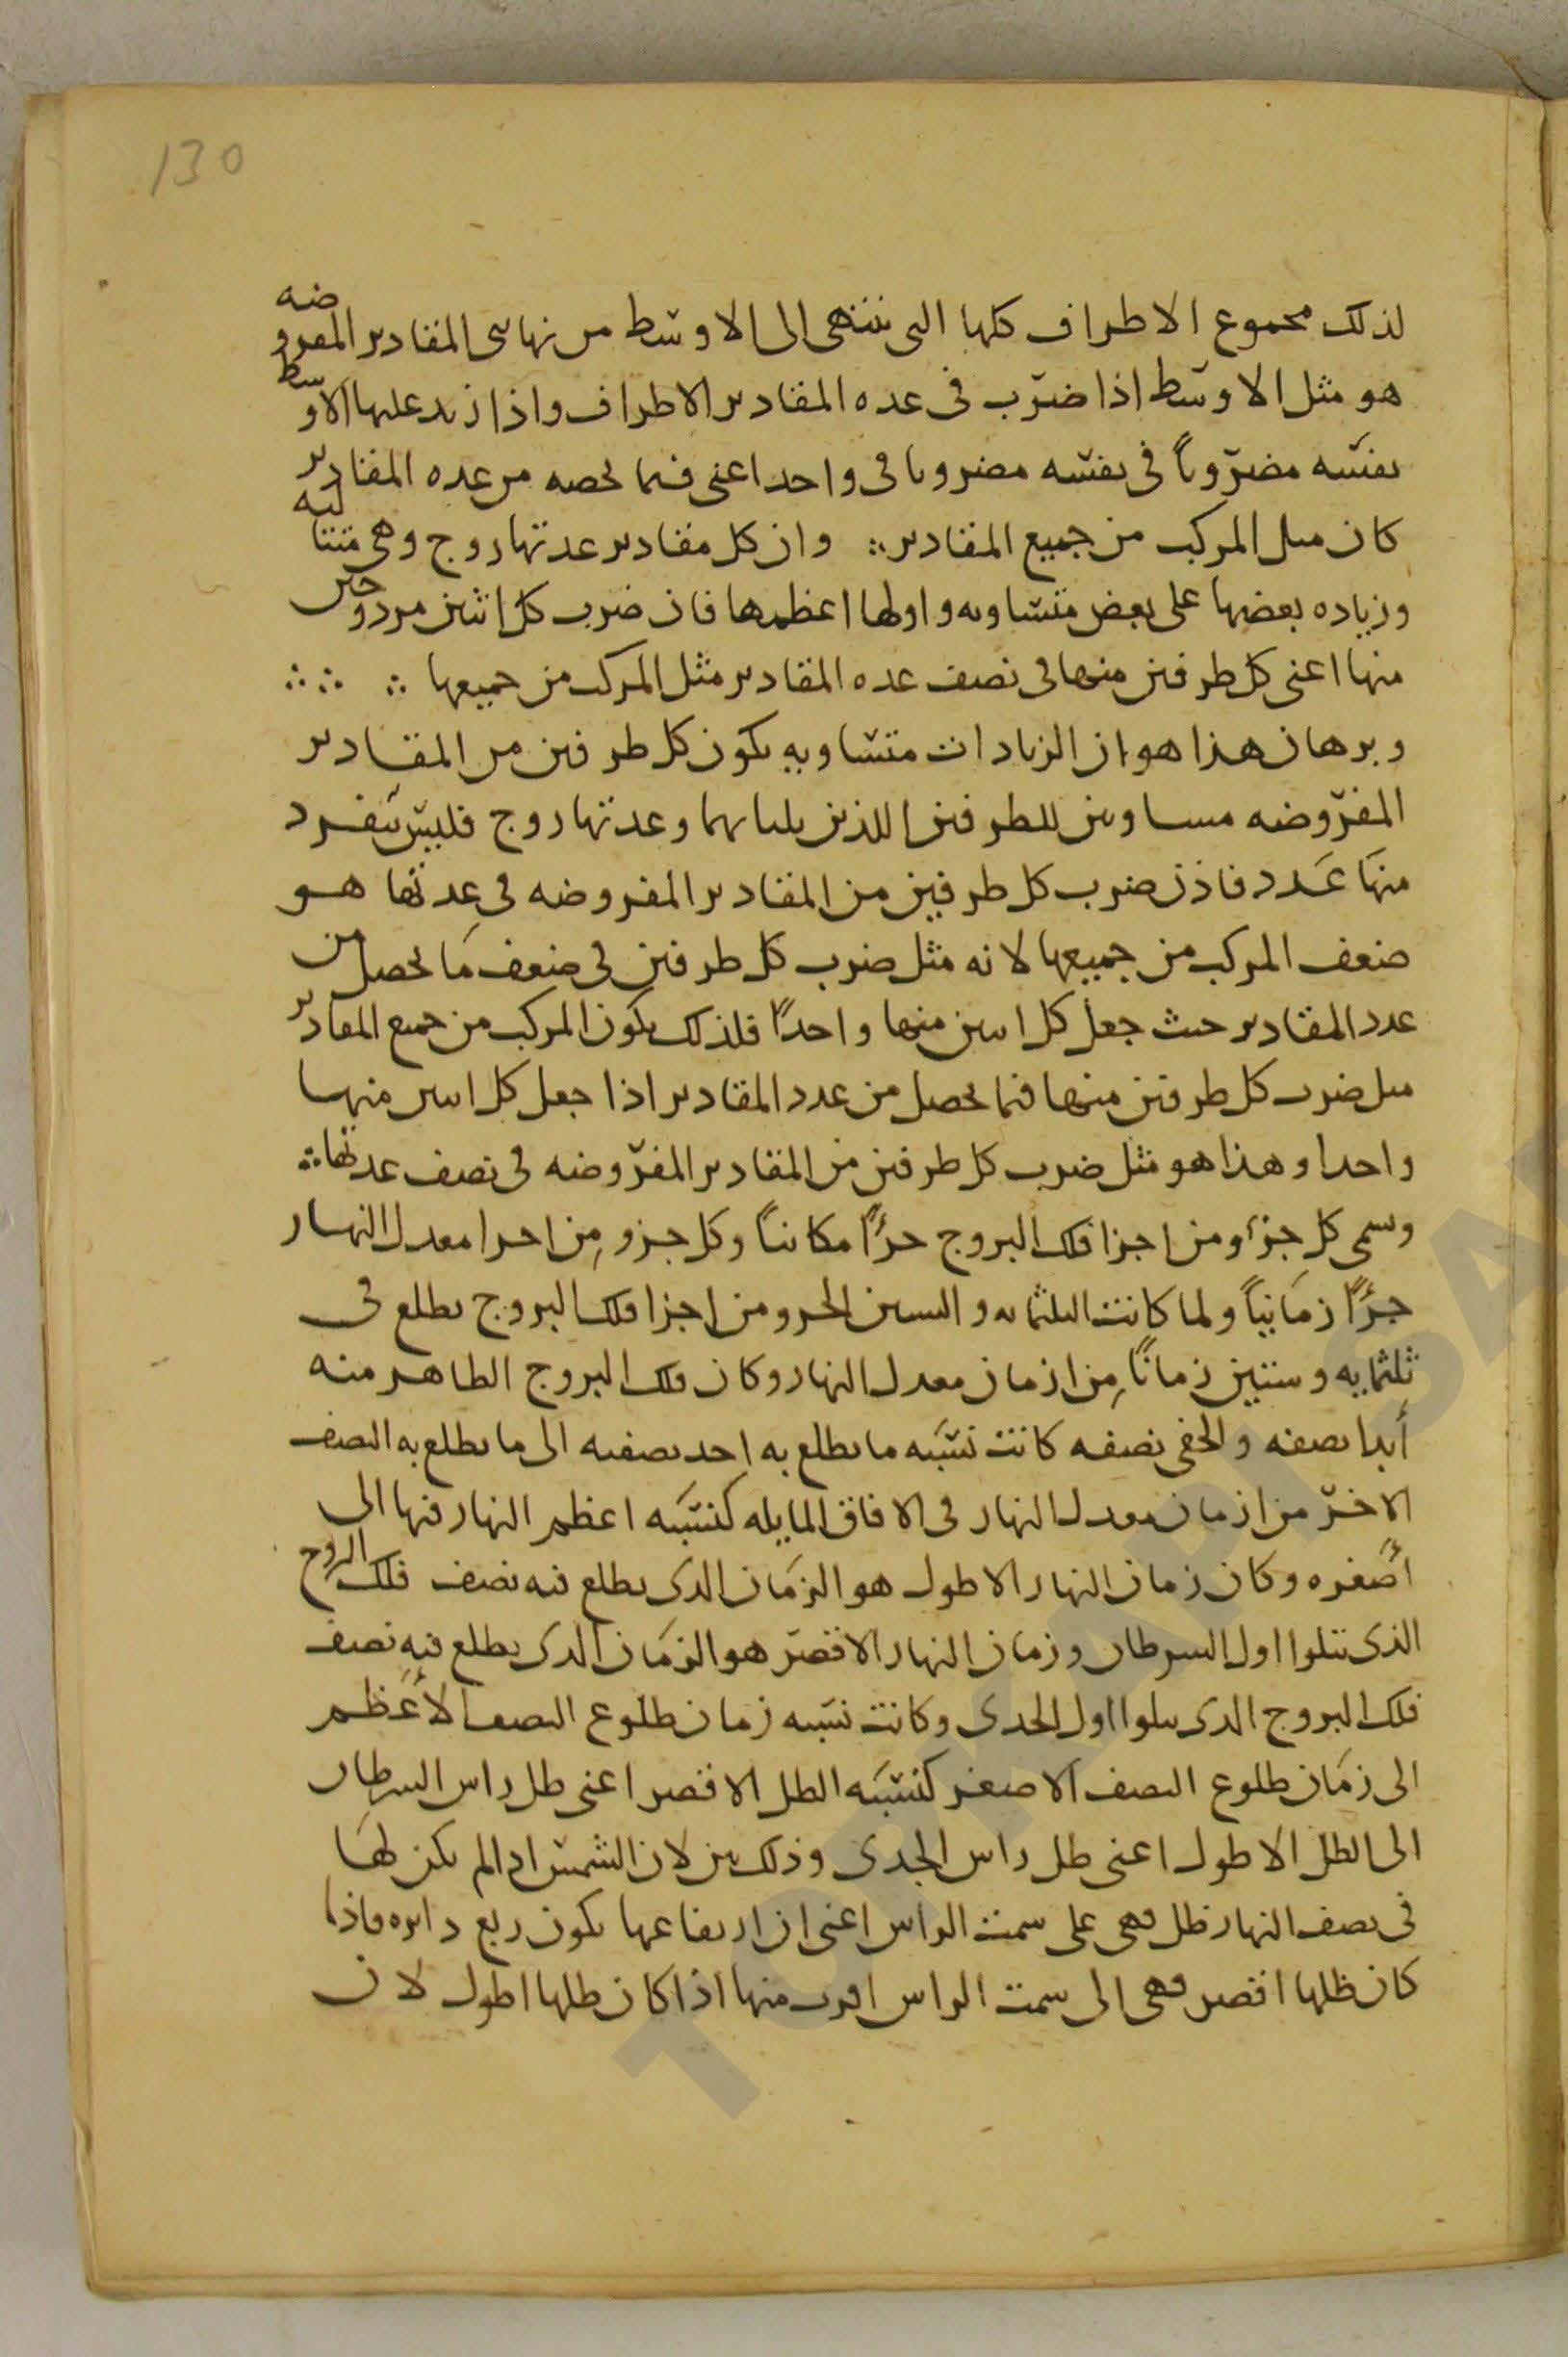 130
لذلك مجموع الاطراف كلها التى تنتهى الى الاوسط من نهايتى المقادير المفروضه
هو مثل الاوسط اذا ضرب فى عده المقادير الاطراف واذا زيد عليها الاوسط
نفسه مضروباً فى نفسه مضروبا فى واحد اعنى فيما يخصه من عده المقادير
كان مثل المركب من جميع المقادير ⁘ وان كل مقادير عدتها زوج وهى متتاليه
وزياده بعضها على بعض متساويه واولها اعظمها فان ضرب كل اثنين مزدوجين
منها اعنى كل طرفين منها فى نصف عده المقادير مثل المركب من جميعها ⁘ ⁘ ⁘
وبرهان هذا هو ان الزيادات متساويه يكون كل طرفين من المقادير
المفروضه مساويين للطرفين اللذين يليانهما وعدتها زوج فليس ينفرد
منها عدد فاذن ضرب كل طرفين من المقادير المفروضه فى عدتها هو
ضعف المركب من جميعها لانه مثل ضرب كل طرفين فى ضعف ما يحصل من
عدد المقادير حيث جعل كل اثنين منها واحداً فلذلك يكون المركب من جميع المقادير
مثل ضرب كل طرفين منها فيما يحصل من عدد المقادير اذا جعل كل اثنين منها
واحدا وهذا هو مثل ضرب كل طرفين من المقادير المفروضه فى نصف عدتها ⁘
وسمى كل جزؤ من اجزا فلك البروج جزًا مكانياً وكل جزو من اجزا معدل النهار
جزًا زمانياً ولما كانت الثلثمايه والستين الجزو من اجزا فلك البروج تطلع فى
ثلثمايه وستين زماناً من ازمان معدل النهار وكان فلك البروج الظاهر منه
أبدا نصفه والخفى نصفه كانت نسبه ما يطلع به احد نصفيه الى ما يطلع به النصف
الاخر من ازمان معدل النهار فى الافاق المايله كنسبه اعظم النهار فيها الى
أصغره وكان زمان النهار الاطول هو الزمان الذى يطلع فيه نصف فلك البروج
الذى يتلوا اول السرطان وزمان النهار الاقصر هو الزمان الذى يطلع فيه نصف
فلك البروج الذى يتلوا اول الجدى وكانت نسبه زمان طلوع النصف الأعظم
الى زمان طلوع النصف الاصغر كنسبه الظل الاقصر اعنى ظل راس السرطان
الى الظل الاطول اعنى ظل راس الجدى وذلك بين لان الشمس اذا لم يكن لها
فى نصف النهار ظل فهى على سمت الراس اعنى ان ارتفاعها يكون ربع دايره فاذا
كان ظلها اقصر فهى الى سمت الراس اقرب منها اذا كان ظلها اطول لان